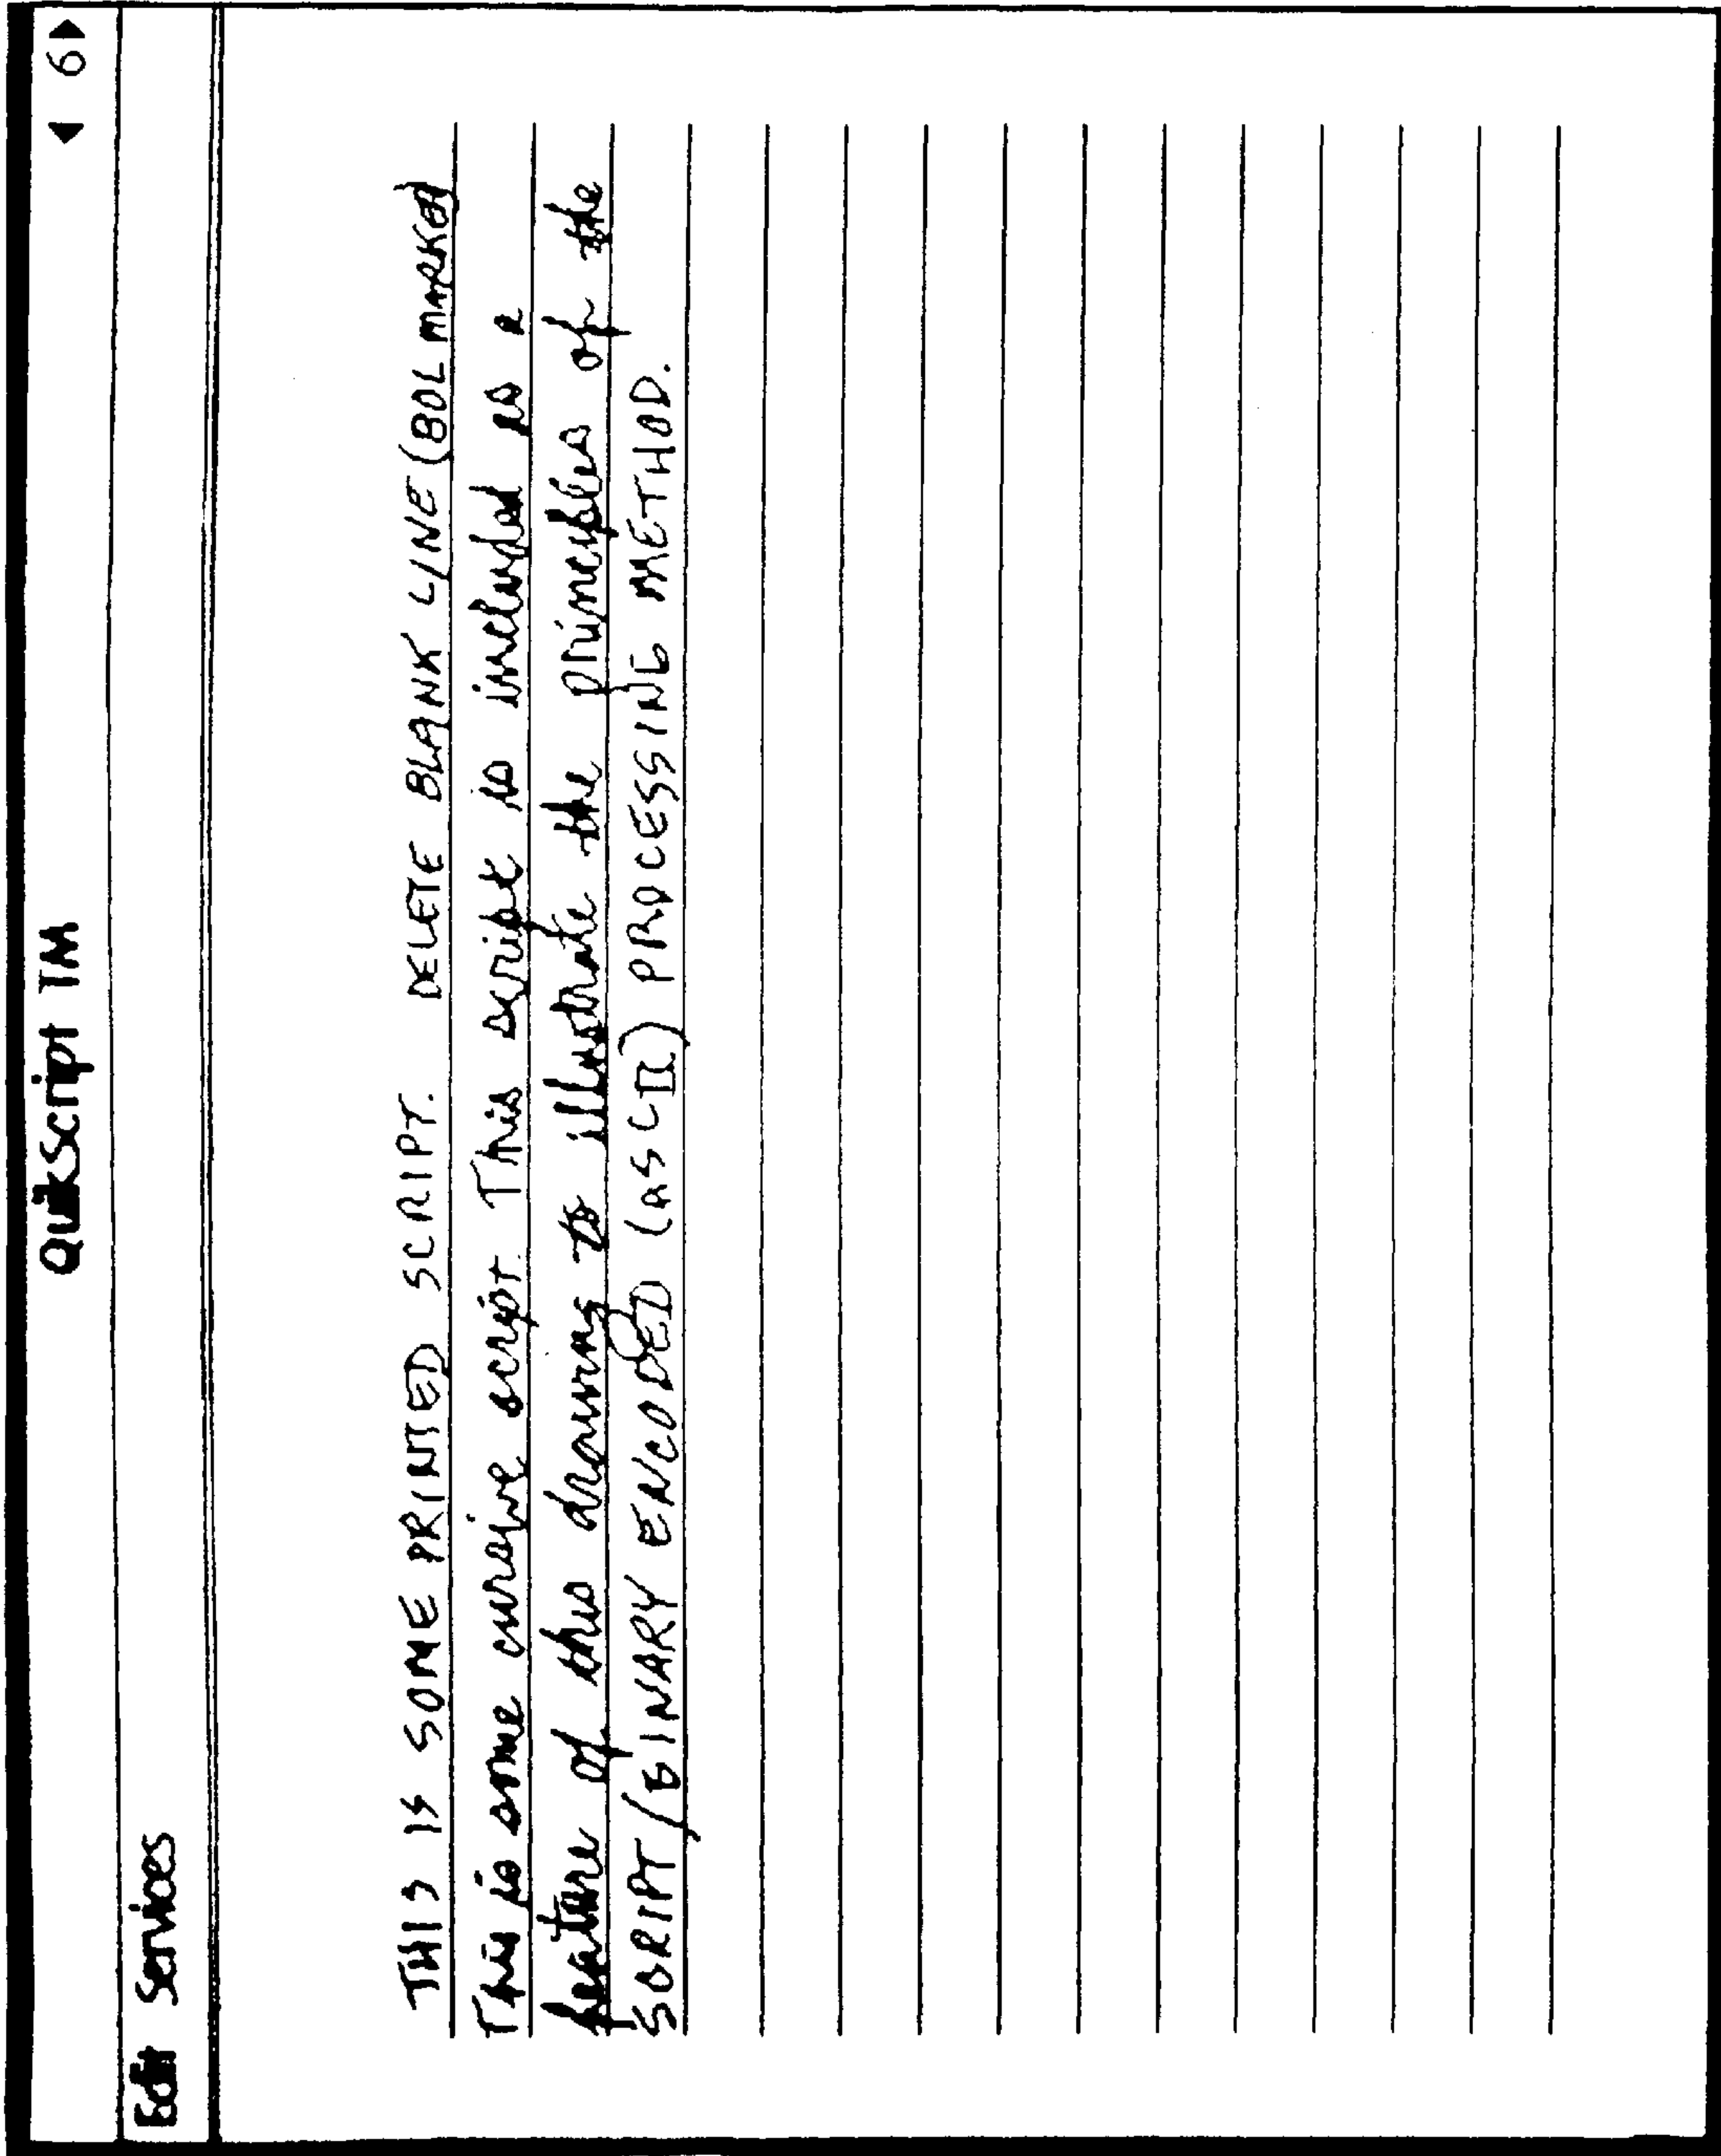 QuikScript TM ◀ 6▶
Edit Services
THIS IS SOME PRINTED SCRIPT. DELETE BLANK LINE (BOL MARKED)
This is some cursive script. This script is included as a
feature of this drawing to illustrate the principles of the
SCRIPT/(BINARY ENCODED (ASCII) PROCESSING METHOD.